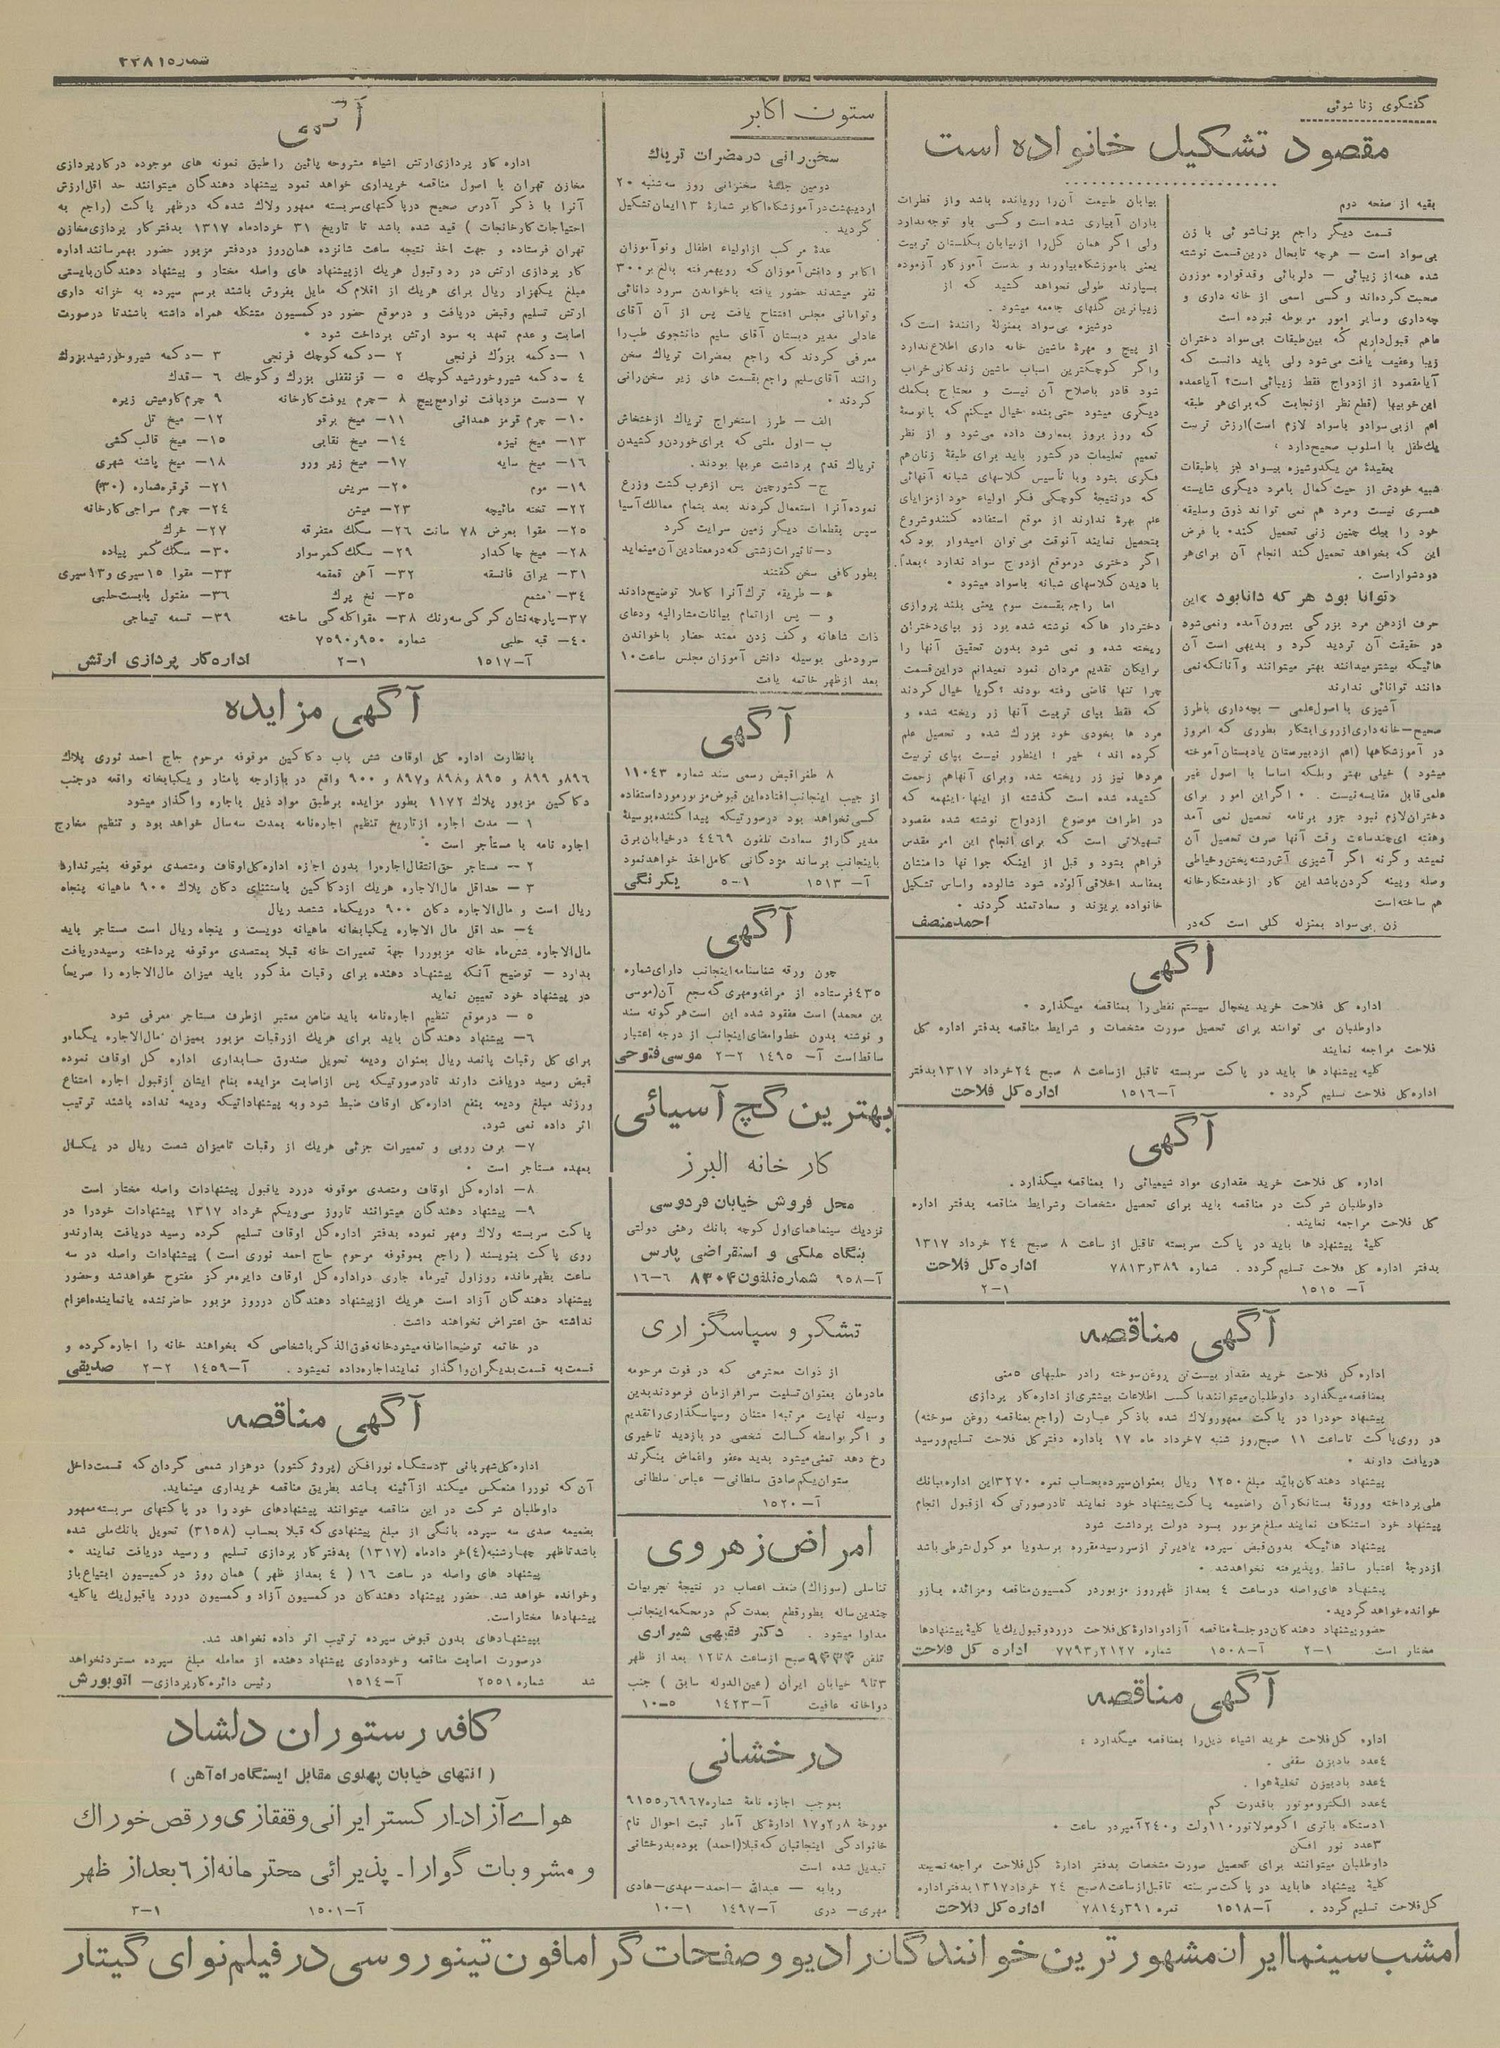 شماره ۳۳۸۱۵
گفتگوی زناشوئی
مقصود تشکیل خانواده است
بقیه از صفحه دوم
قسمت دیگر راجع بزناشوئی با زن
بی‌سواد است — هرچه تابحال درین قسمت نوشته
شده همه از زیبائی — دلربائی وقدقواره موزون
صحبت کرده‌اند و کسی اسمی از خانه داری و
بچه‌داری وسایر امور مربوطه نبرده است
ماهم قبول داریم که بین طبقات بی‌سواد دختران
زیبا وعفیف یافت می‌شود ولی باید دانست که
آیا مقصود از ازدواج فقط زیبائی است؟ آیا عمده
این خوبیها (قطع نظر از نجابت که برای هر طبقه
اعم از بی‌سواد و باسواد لازم است) ارزش تربیت
یك طفل با اسلوب صحیح دارد؟
بعقیدهٔ من یکدوشیزه بیسواد جز باطبقات
شبیه خودش از حیث کمال بامرد دیگری شایسته
همسری نیست ومرد هم نمی تواند ذوق وسلیقه
خود را بیك چنین زنی تحمیل کند، با فرض
این که بخواهد تحمیل کند انجام آن برای هر
دو دشوار است.
«توانا بود هر که دانا بود» این
حرف از دهن مرد بزرگی بیرون آمده ونمی‌شود
در حقیقت آن تردید کرد و بدیهی است آن
هائیکه بیشتر میدانند بهتر میتوانند و آنانکه نمی
دانند توانائی ندارند
آشپزی با اصول علمی — بچه‌داری باطرز
صحیح — خانه‌داری از روی ابتکار بطوری که امروز
در آموزشگاهها (اعم از دبیرستان یا دبستان آموخته
میشود) خیلی بهتر وبلکه اساسا با اصول غیر
علمی قابل مقایسه نیست. اگر این امور برای
دختران لازم نبود جزو برنامه تحصیل نمی آمد
وهفته ای چند ساعت وقت آنها صرف تحصیل آن
نمیشد وگرنه اگر آشپزی آش رشته پختن وخیاطی
وصله وپینه کردن باشد این کار از خدمتکار خانه
هم ساخته است
زن بی‌سواد بمنزله گلی است که در
بیابان طبیعت آن را رویانده باشد و از قطرات
باران آبیاری شده است و کسی باو توجه ندارد
ولی اگر همان گل را از بیابان بگلستان تربیت
یعنی باموزشگاه بیاورند و بدست آموزکار آزموده
بسپارند طولی نخواهد کشید که از
زیباترین گلهای جامعه میشود.
دوشیزه بی‌سواد بمنزلهٔ راننده است که
از پیچ و مهرهٔ ماشین خانه داری اطلاع ندارد
واگر کوچکترین اسباب ماشین زندگانی خراب
شود قادر باصلاح آن نیست و محتاج بکمك
دیگری میشود حتی بنده خیال میکنم که با توسعهٔ
که روز بروز بمعارف داده می‌شود و از نظر
تعمیم تعلیمات در کشور باید برای طبقهٔ زنان هم
فکری بشود وبا تأسیس کلاسهای شبانه آنهائی
که در نتیجهٔ کوچکی فکر اولیاء خود از مزایای
علم بهرهٔ ندارند از موقع استفاده کنند و شروع
بتحصیل نمایند آنوقت می‌توان امیدوار بود که
اگر دختری در موقع ازدواج سواد ندارد، بعداً
با دیدن کلاسهای شبانه باسواد میشود.
اما راجع بقسمت سوم یعنی بلند پروازی
دختردار ها که نوشته شده بود زر بپای دختران
ریخته شده و نمی شود بدون تحقیق آنها را
برایگان تقدیم مردان نمود نمیدانم در این قسمت
چرا تنها قاضی رفته بودند؟ گویا خیال کردند
که فقط بپای تربیت آنها زر ریخته شده و
مرد ها بخودی خود بزرگ شده و تحصیل علم
کرده اند، خیر! اینطور نیست بپای تربیت
مردها نیز زر ریخته شده وبرای آنها هم زحمت
کشیده شده است گذشته از اینها، اینهمه که
در اطراف موضوع ازدواج نوشته شده مقصود
تسهیلاتی است که برای انجام این امر مقدس
فراهم بشود و قبل از اینکه جوانها دامنشان
بمفاسد اخلاقی آلوده شود شالوده واساس تشکیل
خانواده بریزند و سعادتمند گردند.
احمد منصف
آگهی
اداره کل فلاحت خرید یخچال سیستم نفطی را بمناقصه میگذارد.
داوطلبان می توانند برای تحصیل صورت مشخصات و شرایط مناقصه بدفتر اداره کل
فلاحت مراجعه نمایند
کلیه پیشنهاد ها باید در پاکت سربسته تا قبل از ساعت ۸ صبح ۲۴ خرداد ۱۳۱۷ بدفتر
اداره کل فلاحت تسلیم گردد. آ—۱۵۱۶ اداره کل فلاحت
آگهی
اداره کل فلاحت خرید مقداری مواد شیمیائی را بمناقصه میگذارد.
داوطلبان شرکت در مناقصه باید برای تحصیل مشخصات وشرایط مناقصه بدفتر اداره
کل فلاحت مراجعه نمایند.
کلیهٔ پیشنهاد ها باید در پاکت سربسته تا قبل از ساعت ۸ صبح ۲۴ خرداد ۱۳۱۷
بدفتر اداره کل فلاحت تسلیم گردد. شماره ۷۸۱۳ر۳۸۹ اداره کل فلاحت
آ— ۱۵۱۵ ۱—۲
آگهی مناقصه
اداره کل فلاحت خرید مقدار بیست تن روغن سوخته را در حلبهای ۵ منی
بمناقصه میگذارد داوطلبان میتوانند با کسب اطلاعات بیشتری از اداره کار پردازی
پیشنهاد خود را در پاکت ممهور ولاك شده باذکر عبارت (راجع بمناقصه روغن سوخته)
در روی پاکت تا ساعت ۱۱ صبح روز شنبه ۷ خرداد ماه ۱۷ باداره دفتر کل فلاحت تسلیم ورسید
دریافت دارند.
پیشنهاد دهندگان باید مبلغ ۱۲۵۰ ریال بعنوان سپرده بحساب نمره ۳۲۷۰ این اداره ببانك
ملی پرداخته وورقهٔ بستانکار آن را ضمیمه پاکت پیشنهاد خود نمایند تا در صورتی که از قبول انجام
پیشنهاد خود استنکاف نمایند مبلغ مزبور بسود دولت برداشت شود
پیشنهاد هائیکه بدون قبض سپرده یا دیرتر از سررسید مقرره برسد و یا موکول بشرطی باشد
از درجهٔ اعتبار ساقط وپذیرفته نخواهد شد.
پیشنهاد های واصله در ساعت ۴ بعد از ظهر روز مزبور در کمسیون مناقصه ومزائده باز و
خوانده خواهد گردید.
حضور پیشنهاد دهندگان در جلسهٔ مناقصه آزاد و ادارهٔ کل فلاحت در رد و قبول یك یا کلیهٔ پیشنهادها
مختار است ۱—۲ آ—۱۵۰۸ شماره ۷۷۹۳ر۲۱۲۷ اداره کل فلاحت
آگهی مناقصه
اداره کل فلاحت خرید اشیاء ذیل را بمناقصه میگذارد:
۴ عدد بادبزن سقفی.
۴ عدد بادبیزن تخلیهٔ هوا.
۴ عدد الکتروموتور باقدرت کم
۱ دستگاه باتری آکومولاتور ۱۱۰ ولت و ۲۴۰ آمپر در ساعت.
۳ عدد نور افکن
داوطلبان میتوانند برای تحصیل صورت مشخصات بدفتر ادارهٔ کل فلاحت مراجعه نمایند
کلیهٔ پیشنهاد ها باید در پاکت سر بسته تا قبل از ساعت ۸ صبح ۲۴ خرداد ۱۳۱۷ بدفتر اداره
کل فلاحت تسلیم گردد. آ—۱۵۱۸ نمره ۷۸۱۴ر۳۹۱ اداره کل فلاحت
ستون اکابر
سخن‌رانی در مضرات تریاك
دومین جلسهٔ سخنرانی روز سه شنبه ۲۰
اردیبهشت در آموزشگاه اکابر شمارهٔ ۱۳ ایمان تشکیل
گردید.
عدهٔ مرکب از اولیاء اطفال ونوآموزان
اکابر و دانش آموزان که رویهمرفته بالغ بر ۳۰۰
نفر میشدند حضور یافته باخواندن سرود دانائی
وتوانائی مجلس افتتاح یافت پس از آن آقای
عادلی مدیر دبستان آقای سلیم دانشجوی طب را
معرفی کردند که راجع بمضرات تریاك سخن
رانند آقای سلیم راجع بقسمت های زیر سخن‌رانی
کردند.
الف — طرز استخراج تریاك از خشخاش
ب — اول ملتی که برای خوردن و کشیدن
تریاك قدم برداشت عربها بودند.
ج — کشور چین پس از عرب کشت وزرع
نموده آنرا استعمال کردند بعد بتمام ممالك آسیا
سپس بقطعات دیگر زمین سرایت کرد
د — تاثیرات زشتی که در معتادین آن مینماید
بطور کافی سخن گفتند
ه — طریقه ترك آنرا کاملا توضیح دادند
و — پس از اتمام بیانات مشارالیه ودعای
ذات شاهانه و کف زدن ممتد حضار باخواندن
سرود ملی بوسیله دانش آموزان مجلس ساعت ۱۰
بعد از ظهر خاتمه یافت
آگهی
۸ طغرا قبض رسمی سند شماره ۱۱۰۴۳
از جیب اینجانب افتاده این قبوض مزبور مورد استفاده
کسی نخواهد بود در صورتیکه پیدا کننده بوسیلهٔ
مدیر گاراژ سعادت تلفون ۴۴۶۹ در خیابان برق
باینجانب برساند مژدگانی کامل اخذ خواهد نمود
آ— ۱۵۱۳ ۱—۵ یکرنگی
آگهی
چون ورقه شناسنامه اینجانب دارای شماره
۴۳۵ فرستاده از مراغه ومهری که سجع آن (موسی
بن محمد) است مفقود شده این است هر گونه سند
و نوشته بدون خط وامضای اینجانب از درجه اعتبار
ساقط است آ— ۱۴۹۵ ۲—۲ موسی فتوحی
بهترین گچ آسیائی
کار خانه البرز
محل فروش خیابان فردوسی
نزدیك سینماهای اول کوچه بانك رهنی دولتی
بنگاه ملکی و استقراضی پارس
آ—۹۵۸ شماره تلفون ۸۳۰۴ ۶—۱۶
تشکر و سپاسگزاری
از ذوات محترمی که در فوت مرحومه
مادرمان بعنوان تسلیت سرافرازمان فرمودند بدین
وسیله نهایت مرتبه امتنان وسپاسگذاری را تقدیم
و اگر بواسطه کسالت شخصی در بازدید تاخیری
رخ دهد تمنی میشود بدیده عفو واغماض بنگرند
ستوان یکم صادق سلطانی — عباس سلطانی
آ— ۱۵۲۰
امراض زهروی
تناسلی (سوزاك) ضعف اعصاب در نتیجهٔ تجربیات
چندین ساله بطور قطع بمدت کم در محکمه اینجانب
مداوا میشود. دکتر فقیهی شیرازی
تلفن ۹۴۴۴ صبح از ساعت ۸ تا ۱۲ بعد از ظهر
۳ تا ۹ خیابان ایران (عین‌الدوله سابق) جنب
دواخانه عافیت آ—۱۴۲۳ ۵—۱۰
درخشانی
بموجب اجازه نامهٔ شماره ۹۱۵۵ر۶۹۶۷
مورخهٔ ۱۷ر۲ر۸ ادارهٔ کل آمار ثبت احوال نام
خانوادگی اینجانبان که قبلا (احمد) بوده بدرخشانی
تبدیل شده است
ربابه — عبدالله — احمد — مهدی — هادی
مهری — دری آ—۱۴۹۷ ۱—۱۰
آگهی
اداره کار پردازی ارتش اشیاء مشروحه پائین را طبق نمونه های موجوده در کار پردازی
مخازن تهران با اصول مناقصه خریداری خواهد نمود پیشنهاد دهندگان میتوانند حد اقل ارزش
آنرا با ذکر آدرس صحیح در پاکتهای سربسته ممهور ولاك شده که در ظهر پاکت (راجع به
احتیاجات کارخانجات) قید شده باشد تا تاریخ ۳۱ خرداد ماه ۱۳۱۷ بدفتر کار پردازی مخازن
تهران فرستاده و جهت اخذ نتیجه ساعت شانزده همان روز در دفتر مزبور حضور بهمرسانند اداره
کار پردازی ارتش در رد وقبول هریك از پیشنهاد های واصله مختار و پیشنهاد دهندگان بایستی
مبلغ یکهزار ریال برای هریك از اقلام که مایل بفروش باشند برسم سپرده به خزانه داری
ارتش تسلیم وقبض دریافت و در موقع حضور در کمسیون متشکله همراه داشته باشند تا در صورت
اصابت و عدم تعهد به سود ارتش برداخت شود.
۱ —دکمه بزرك فرنجی ۲ —دکمه کوچك فرنجی ۳ —دکمه شیر وخورشید بزرك
۴ —دکمه شیر وخورشید کوچك ۵ — قزنقفلی بزرك و کوچك ۶ —قدك
۷ — دست مزد بافت نوار مچ پیچ ۸ —چرم یوفت کارخانه ۹ چرم گاومیش زیره
۱۰— چرم قرمز همدانی ۱۱— میخ برقو ۱۲— میخ تل
۱۳— میخ نیزه ۱۴— میخ نقابی ۱۵— میخ قالب کشی
۱۶— میخ سایه ۱۷— میخ زیر ورو ۱۸— میخ پاشنه شهری
۱۹— موم ۲۰— سریش ۲۱— قرقره شماره (۳۰)
۲۲— تخته ماتیچه ۲۳— میشن ۲۴— چرم سراجی کارخانه
۲۵— مقوا بعرض ۷۸ سانت ۲۶— سگك متفرقه ۲۷— خرك
۲۸— میخ چاکدار ۲۹— سگك کمر سوار ۳۰— سگك کمر پیاده
۳۱— یراق فانسقه ۳۲— آهن قمقمه ۳۳— مقوا ۱۵ سیری و ۱۳ سیری
۳۴— مشمع ۳۵— نخ پرك ۳۶— مفتول پابست حلبی
۳۷— پارچه نشان کرکی سه رنك ۳۸— مقوا کله گی ساخته ۳۹— تسمه تیماجی
۴۰— قبه حلبی شماره ۷۵۹۰ر۹۵۰
آ—۱۵۱۷ ۱—۲ اداره کار پردازی ارتش
آگهی مزایده
بانظارت اداره کل اوقاف شش باب دکاکین موقوفه مرحوم حاج احمد نوری پلاك
۸۹۶ و ۸۹۹ و ۸۹۵ و ۸۹۸ و ۸۹۷ و ۹۰۰ واقع در بازارچه پامنار و یکبابخانه واقعه در جنب
دکاکین مزبور پلاك ۱۱۷۲ بطور مزایده بر طبق مواد ذیل باجاره واگذار میشود
۱ — مدت اجاره از تاریخ تنظیم اجاره‌نامه بمدت سه سال خواهد بود و تنظیم مخارج
اجاره نامه با مستأجر است.
۲ — مستاجر حق انتقال اجاره را بدون اجازه اداره کل اوقاف ومتصدی موقوفه بغیر ندارد
۳ — حداقل مال‌الاجاره هریك از دکاکین باستثنای دکان پلاك ۹۰۰ ماهیانه پنجاه
ریال است و مال‌الاجاره دکان ۹۰۰ در یکماه شصد ریال
۴— حد اقل مال الاجاره یکبابخانه ماهیانه دویست و پنجاه ریال است مستاجر باید
مال‌الاجاره شش ماه خانه مزبور را جهة تعمیرات خانه قبلا بمتصدی موقوفه پرداخته رسید دریافت
بدارد — توضیح آنکه پیشنهاد دهنده برای رقبات مذکور باید میزان مال‌الاجاره را صریحاً
در پیشنهاد خود تعیین نماید
۵ — در موقع تنظیم اجاره‌نامه باید ضامن معتبر از طرف مستاجر معرفی شود
۶— پیشنهاد دهندگان باید برای هریك از رقبات مزبور بمیزان مال‌الاجاره یکماهه و
برای کل رقبات پانصد ریال بعنوان ودیعه تحویل صندوق حسابداری اداره کل اوقاف نموده
قبض رسید دریافت دارند تا در صورتیکه پس از اصابت مزایده بنام ایشان از قبول اجاره امتناع
ورزند مبلغ ودیعه بنفع اداره کل اوقاف ضبط شود و به پیشنهاداتیکه ودیعه نداده باشند ترتیب
اثر داده نمی شود.
۷— برف روبی و تعمیرات جزئی هریك از رقبات تامیزان شصت ریال در یکسال
بعهده مستاجر است.
۸— اداره کل اوقاف ومتصدی موقوفه در رد یا قبول پیشنهادات واصله مختار است
۹— پیشنهاد دهندگان میتوانند تا روز سی‌ویکم خرداد ۱۳۱۷ پیشنهادات خود را در
پاکت سربسته ولاك ومهر نموده بدفتر اداره کل اوقاف تسلیم کرده رسید دریافت بدارند و
روی پاکت بنویسند (راجع بموقوفه مرحوم حاج احمد نوری است) پیشنهادات واصله در سه
ساعت بظهر مانده روز اول تیر ماه جاری در اداره کل اوقاف دایره مرکز مفتوح خواهد شد و حضور
پیشنهاد دهندگان آزاد است هریك از پیشنهاد دهندگان در روز مزبور حاضر نشده یا نماینده اعزام
نداشته حق اعتراض نخواهند داشت.
در خاتمه توضیحا اضافه میشود خانه فوق‌الذکر باشخاصی که بخواهند خانه را اجاره کرده و
قسمت به قسمت بدیگران واگذار نمایند اجاره داده نمیشود. آ—۱۴۵۹ ۲—۲ صدیقی
آگهی مناقصه
اداره کل شهربانی ۳ دستگاه نورافکن (پروژکتور) دو هزار شمعی گردان که قسمت داخل
آن که نور را منعکس میکند از آئینه باشد بطریق مناقصه خریداری مینماید.
داوطلبان شرکت در این مناقصه میتوانند پیشنهادهای خود را در پاکتهای سربسته ممهور
بضمیمه صدی سه سپرده بانکی از مبلغ پیشنهادی که قبلا بحساب (۳۱۵۸) تحویل بانك ملی شده
باشد تا ظهر چهارشنبه (۴) خرداد ماه (۱۳۱۷) بدفتر کار پردازی تسلیم و رسید دریافت نمایند.
پیشنهاد های واصله در ساعت ۱۶ (۴ بعد از ظهر) همان روز در کمیسیون ابتیاع باز
وخوانده خواهد شد. حضور پیشنهاد دهندگان در کمسیون آزاد و کمسیون در رد یا قبول یك یا کلیه
پیشنهادها مختار است.
بپیشنهادهای بدون قبوض سپرده ترتیب اثر داده نخواهد شد.
در صورت اصابت مناقصه وخودداری پیشنهاد دهنده از معامله مبلغ سپرده مسترد نخواهد
شد شماره ۲۵۵۱ آ—۱۵۱۴ رئیس دائره کار پردازی — اتوبورش
کافه رستوران دلشاد
(انتهای خیابان پهلوی مقابل ایستگاه راه آهن)
هوای آزاد - ارکستر ایرانی و قفقازی و رقص خوراك
و مشروبات گوارا - پذیرائی محترمانه از ۶ بعد از ظهر
آ—۱۵۰۱ ۱—۳
امشب سینما ایران مشهورترین خوانندگان رادیو و صفحات گرامافون تینو روسی در فیلم نوای گیتار